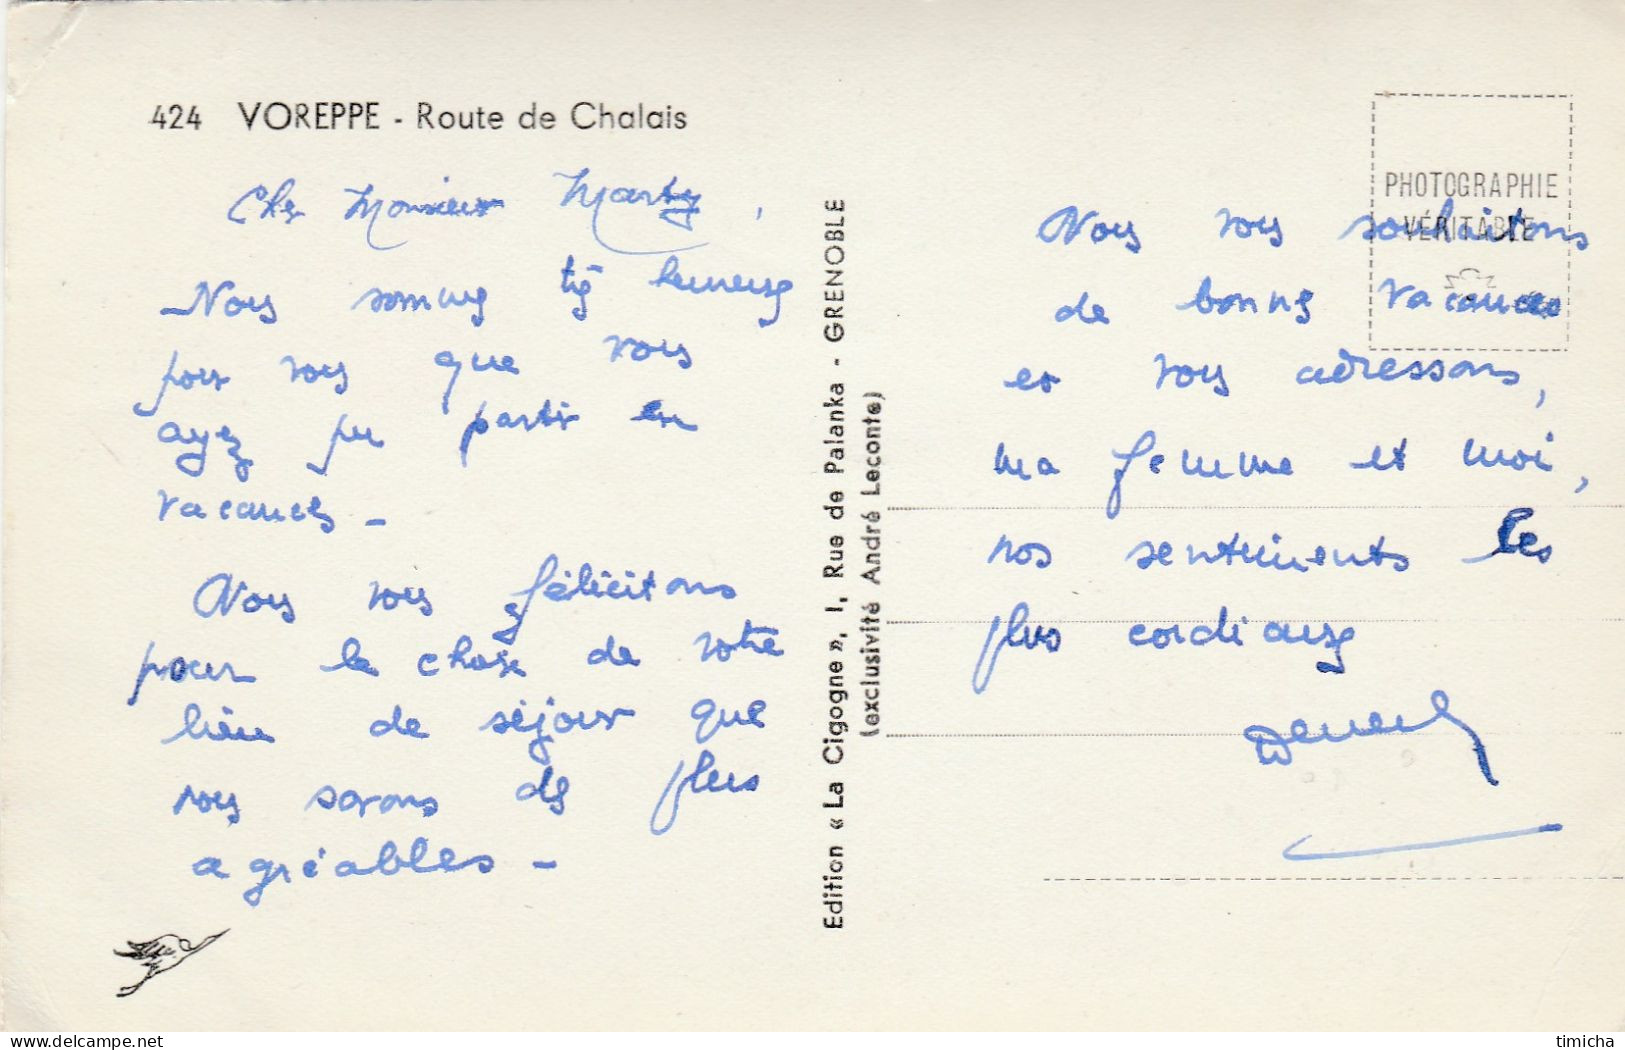 424 VOREPPE - Route de Chalais
Cher Monsieur Marty,
Nous sommes très heureux
pour vous que vous
ayez pu partir en
vacances -
Nous vous félicitons
pour le choix de votre
lieu de séjour que
nous savons des plus
agréables -
Edition « La Cigogne », 1, Rue de Palanka - GRENOBLE
(exclusivité André Leconte)
PHOTOGRAPHIE
VÉRITABLE
Nous vous souhaitons
de bonnes vacances
et vous adressons,
ma femme et moi,
nos sentiments les
plus cordiaux
timicha